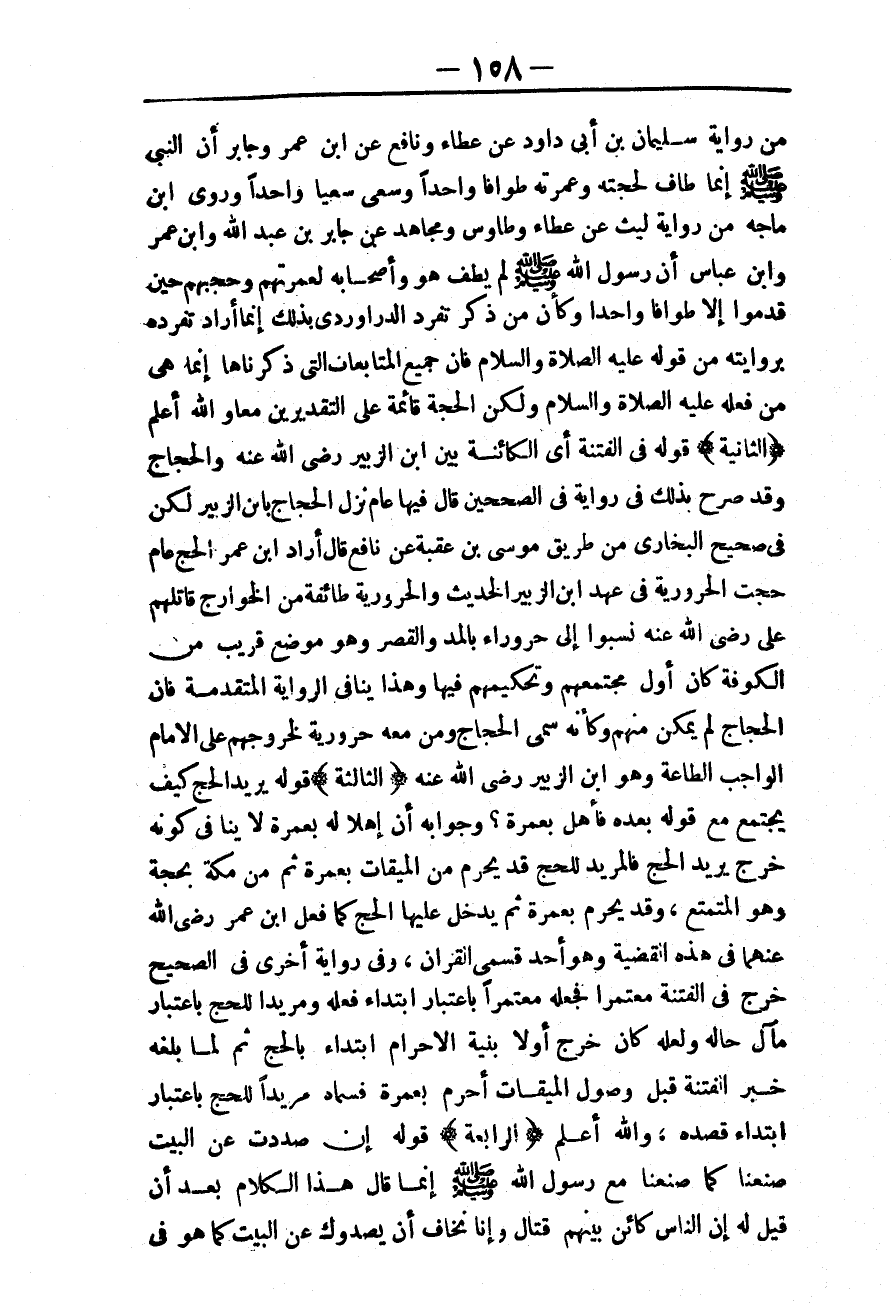 — ١٥٨ —
من رواية سليمان بن أبى داود عن عطاء ونافع عن ابن عمر وجابر أن النبى
ﷺ إنما طاف لحجته وعمرته طوافا واحداً وسعى سعيا واحداً وروى ابن
ماجه من رواية ليث عن عطاء وطاوس ومجاهد عن جابر بن عبد الله وابن عمر
وابن عباس أن رسول الله ﷺ لم يطف هو وأصحابه لعمرتهم وحجبهم حين
قدموا إلا طوافا واحدا وكأن من ذكر تفرد الدراوردى بذلك إنما أراد تفرده
بروايته من قوله عليه الصلاة والسلام فان جميع المتابعات التى ذكرناها إنما هى
من فعله عليه الصلاة والسلام ولكن الحجة قائمة على التقديرين معا والله أعلم
﴿الثانية﴾ قوله فى الفتنة أى الكائنة بين ابن الزبير رضى الله عنه والحجاج
وقد صرح بذلك فى رواية فى الصححين قال فيها عام نزل الحجاج بابن الزبير لكن
فى صحيح البخارى من طريق موسى بن عقبة عن نافع قال أراد ابن عمر الحج عام
حجت الحرورية فى عهد ابن الزبير الحديث والحرورية طائفة من الخوارج قاتلهم
على رضى الله عنه نسبوا إلى حروراء بالمد والقصر وهو موضع قريب من
الكوفة كان أول مجتمعهم وتحكيمهم فيها وهذا ينافى الرواية المتقدمة فان
الحجاج لم يكن منهم وكأنه سمى الحجاج ومن معه حرورية لخروجهم على الامام
الواجب الطاعة وهو ابن الزبير رضى الله عنه ﴿الثالثة﴾ قوله يريد الحج كيف
يجتمع مع قوله بعده فأهل بعمرة ؟ وجوابه أن إهلا له بعمرة لا ينا فى كونه
خرج يريد الحج فالمريد للحج قد يحرم من الميقات بعمرة ثم من مكة بحجة
وهو المتمتع ، وقد يحرم بعمرة ثم يدخل عليها الحج كما فعل ابن عمر رضى الله
عنهما فى هذه القضية وهو أحد قسمى القران ، وفى رواية أخرى فى الصحيح
خرج فى الفتنة معتمرا فجعله معتمراً باعتبار ابتداء فعله ومريدا للحج باعتبار
مآل حاله ولعله كان خرج أولا بنية الاحرام ابتداء بالحج ثم لما بلغه
خبر الفتنة قبل وصول الميقات أحرم بعمرة فسماه مريداً للحج باعتبار
ابتداء قصده ، والله أعلم ﴿الرابعة﴾ قوله إن صددت عن البيت
صنعنا كما صنعنا مع رسول الله ﷺ إنما قال هذا الكلام بعد أن
قيل له إن الناس كائن بينهم قتال وإنا نخاف أن يصدوك عن البيت كما هو فى